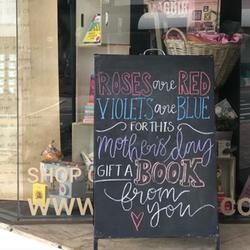 ROSES are RED
VIOLETS are BLUE
FOR THIS
mothers day
GIFT A BOOK
from
you
SHOP
WWW.